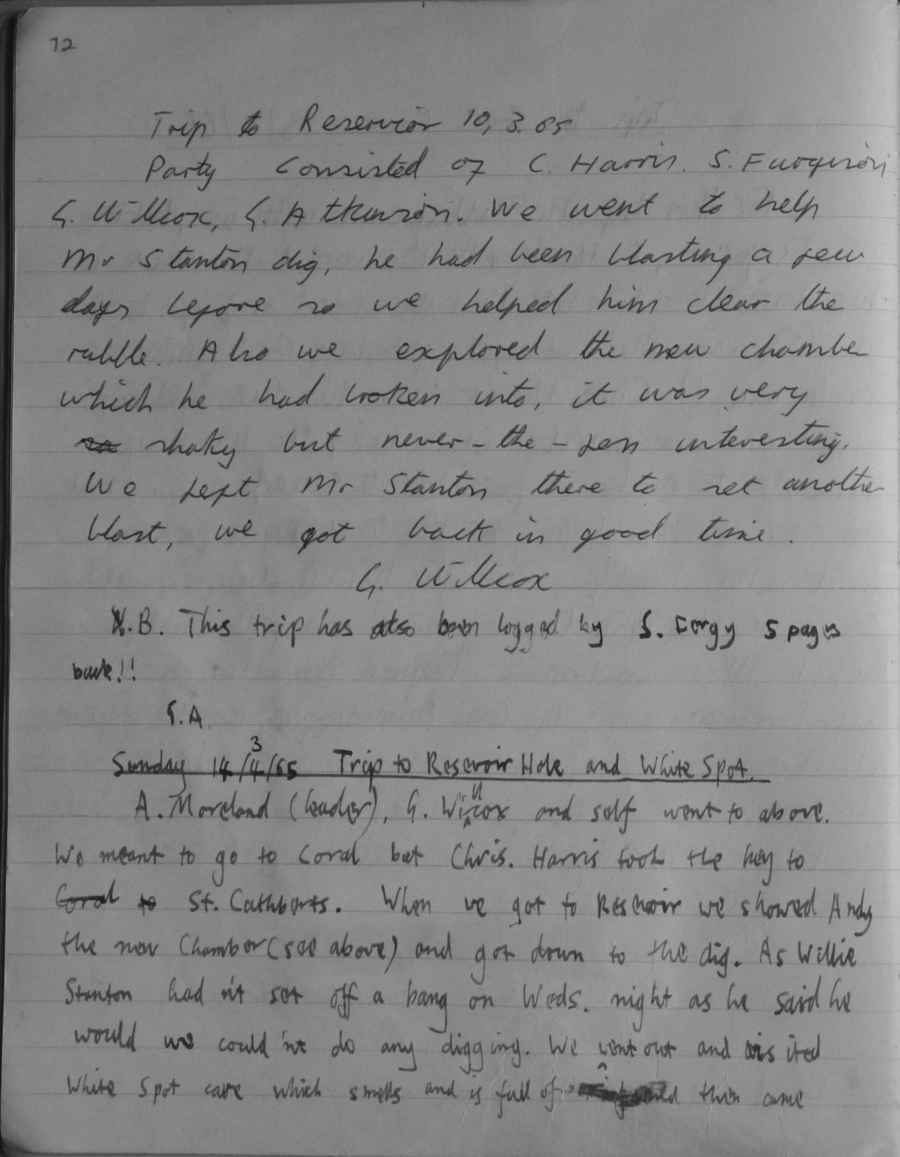 72
Trip to Reservior 10,3.65
Party consisted of C. Harris. S. Furguson
G. Willcox, G. Atkinson. We went to help
Mr Stanton dig, he had been blasting a few
days before so we helped him clear the
rubble. Also we explored the new chamber
which he had broken into, it was very
shaky but never-the-less interesting.
We left Mr Stanton there to set another
blast, we got back in good time.
G. Willcox
N.B. This trip has also been logged by S. Fergy 5 pages
back!!
G.A
Sunday 14/3/65 Trip to Reservoir Hole and White Spot.
A. Moreland (leader), G. Willcox and self went to above.
We meant to go to Coral but Chris. Harris took the key to
Coral to St. Cuthberts. When we got to Reservoir we showed Andy
the new Chamber (see above) and got down to the dig. As Willie
Stanton had n't set off a bang on Weds. night as he said he
would we could n't do any digging. We went out and visited
White Spot cave which smells and is full of and then came